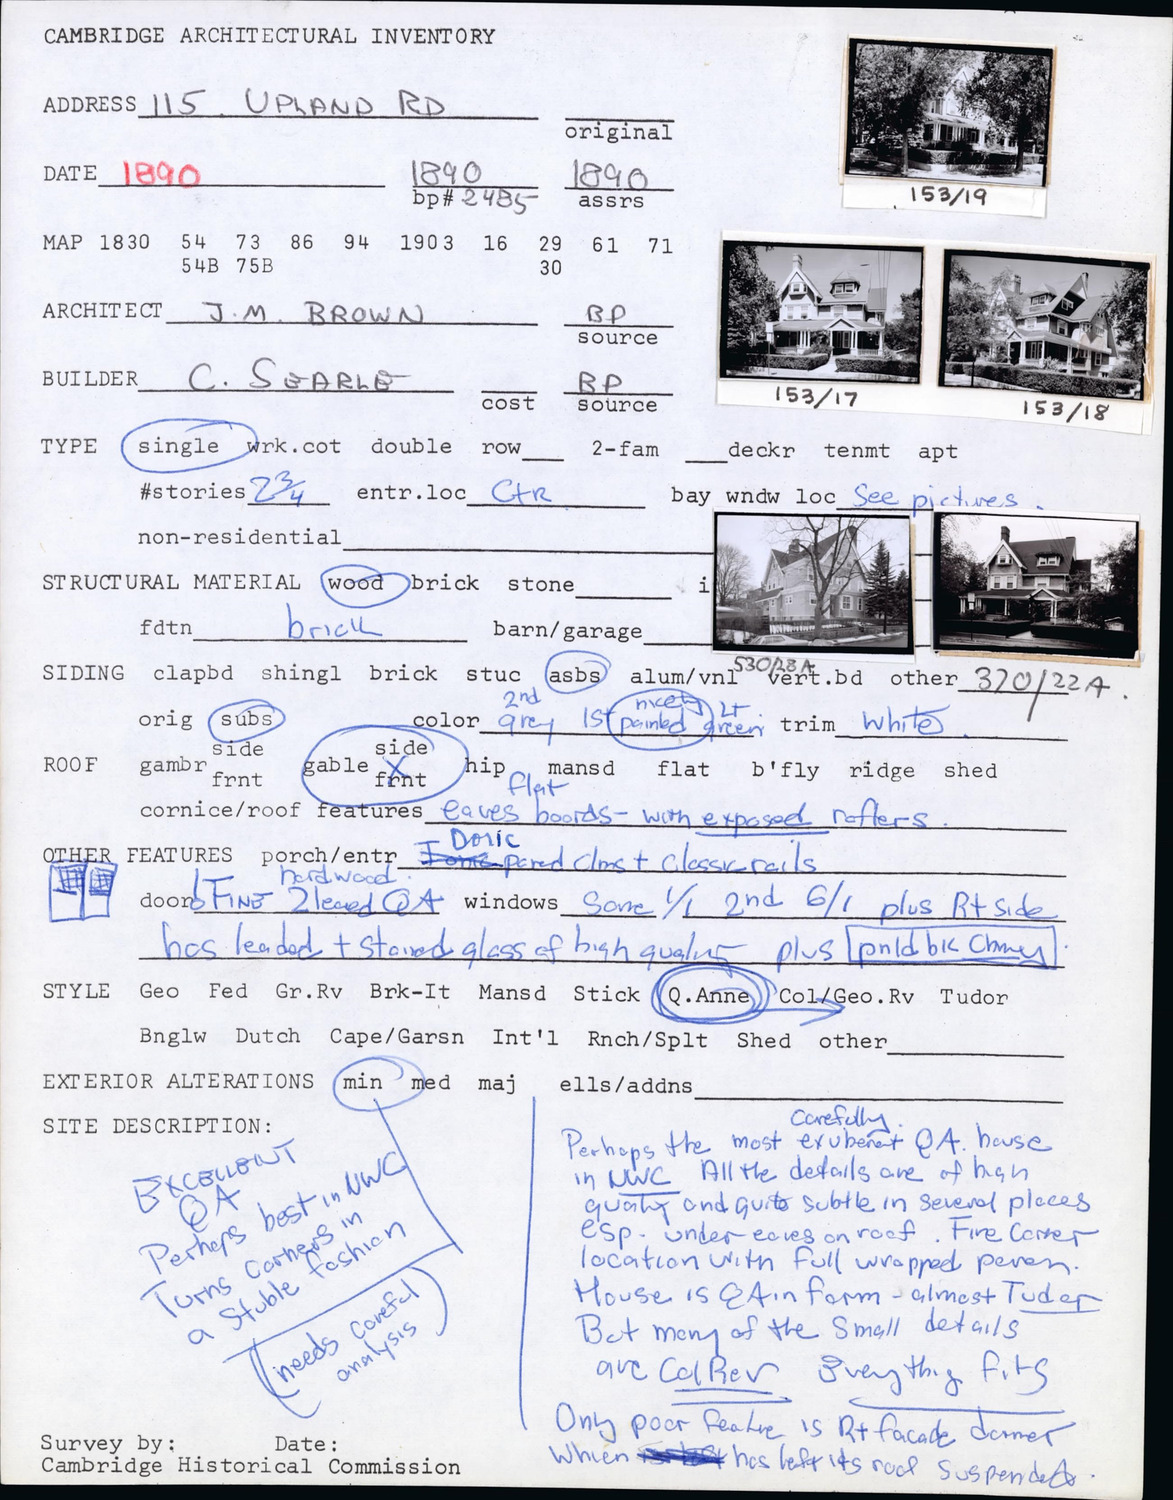 CAMBRIDGE ARCHITECTURAL INVENTORY
ADDRESS 115 UPLAND RD
original
153/19
DATE 1890 1890 1890
bp# 2485 assrs
MAP 1830 54 73 86 94 1903 16 29 61 71
54B 75B 30
ARCHITECT J.M. BROWN BP
source
BUILDER C. SEARLE BP
cost source
153/17 153/18
TYPE single wrk.cot double row 2-fam deckr tenmt apt
#stories 2 3/4 entr.loc Ctr bay wndw loc See pictures.
non-residential
STRUCTURAL MATERIAL wood brick stone i
fdtn brick barn/garage
530/28A
SIDING clapbd shingl brick stuc asbs alum/vnl vert.bd other 370/22A.
orig subs color 2nd grey 1st nicely painted Lt green trim white
ROOF gambr side frnt gable side X frnt hip mansd flat b'fly ridge shed
flat
cornice/roof features eaves boards - with exposed rafters.
Doric
OTHER FEATURES porch/entr paired clms + Classic rails
hardwood
door FINE 2 leaved QA windows Some 1/1 2nd 6/1 plus Rt side
has leaded + Stained glass of high quality plus pntd brk Chmny.
STYLE Geo Fed Gr.Rv Brk-It Mansd Stick Q.Anne Col/Geo.Rv Tudor
Bnglw Dutch Cape/Garsn Int'l Rnch/Splt Shed other
EXTERIOR ALTERATIONS min med maj ells/addns
SITE DESCRIPTION:
EXCELLENT
QA
Perhaps best in NWC
Turns Corners in
a Stuble fashion
(needs careful
analysis)
Carefully
Perhaps the most exuberant QA. house
in NWC All the details are of high
quality and quite subtle in several places
esp. under eaves on roof. Fine Corner
location with full wrapped
House is QA in form - almost Tudor
But many of the Small details
are Col Rev Everything fits
Only poor feature is Rt facade dormer
Which has left its roof suspended.
Survey by: Date:
Cambridge Historical Commission